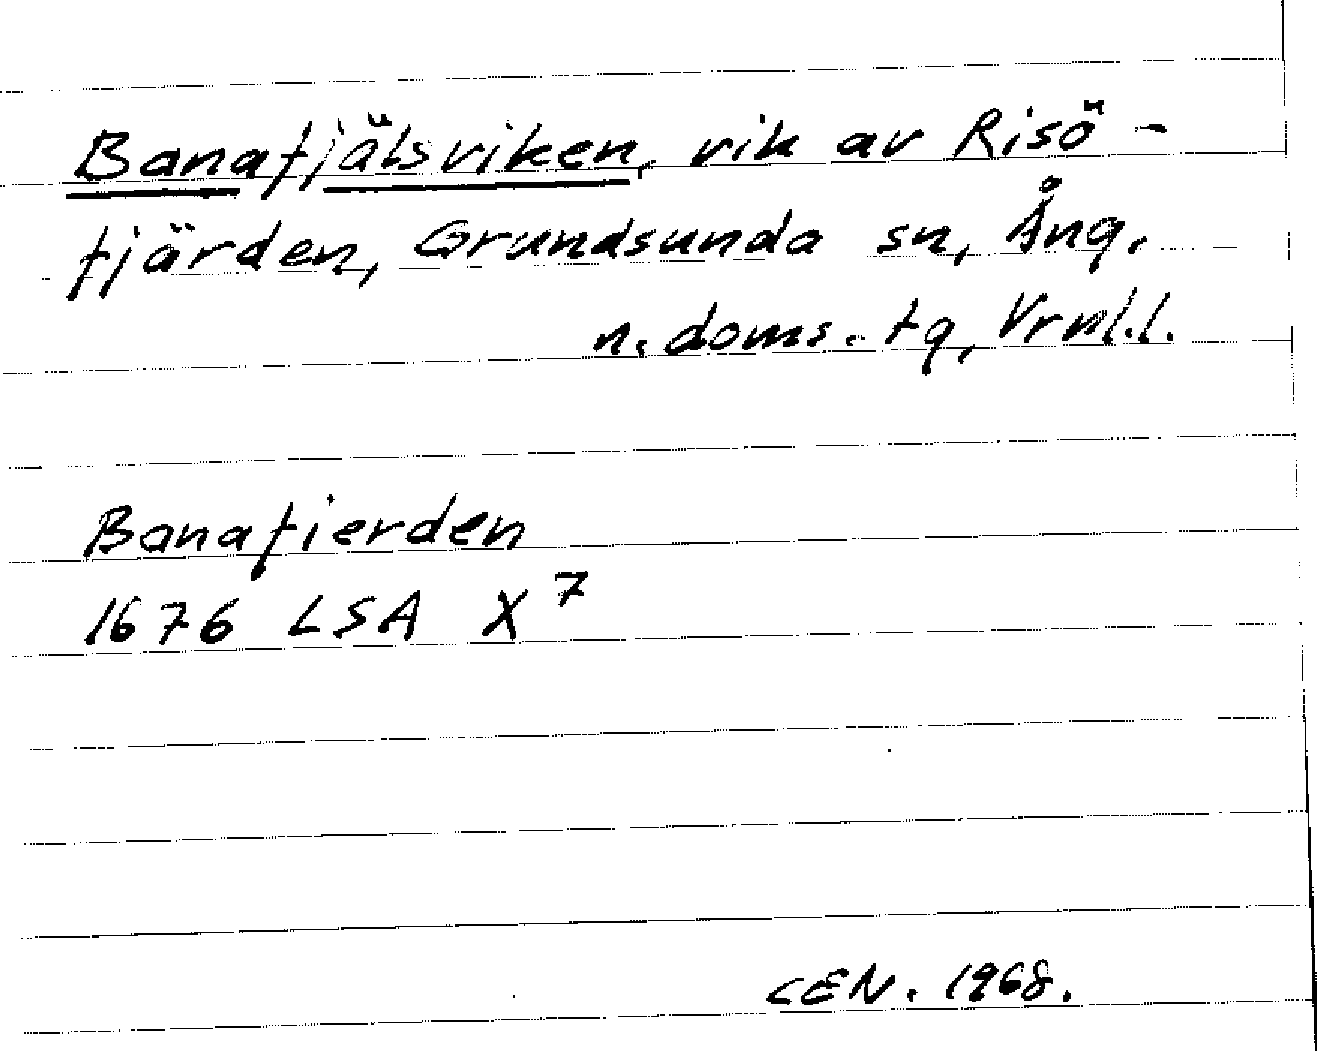 Banafjälsviken, vik av Risö-
fjärden, Grundsunda sn, Ång.
n. doms. tg, Vrml.l.
Banafierden
1676 LSA X⁷
CEN. 1968.